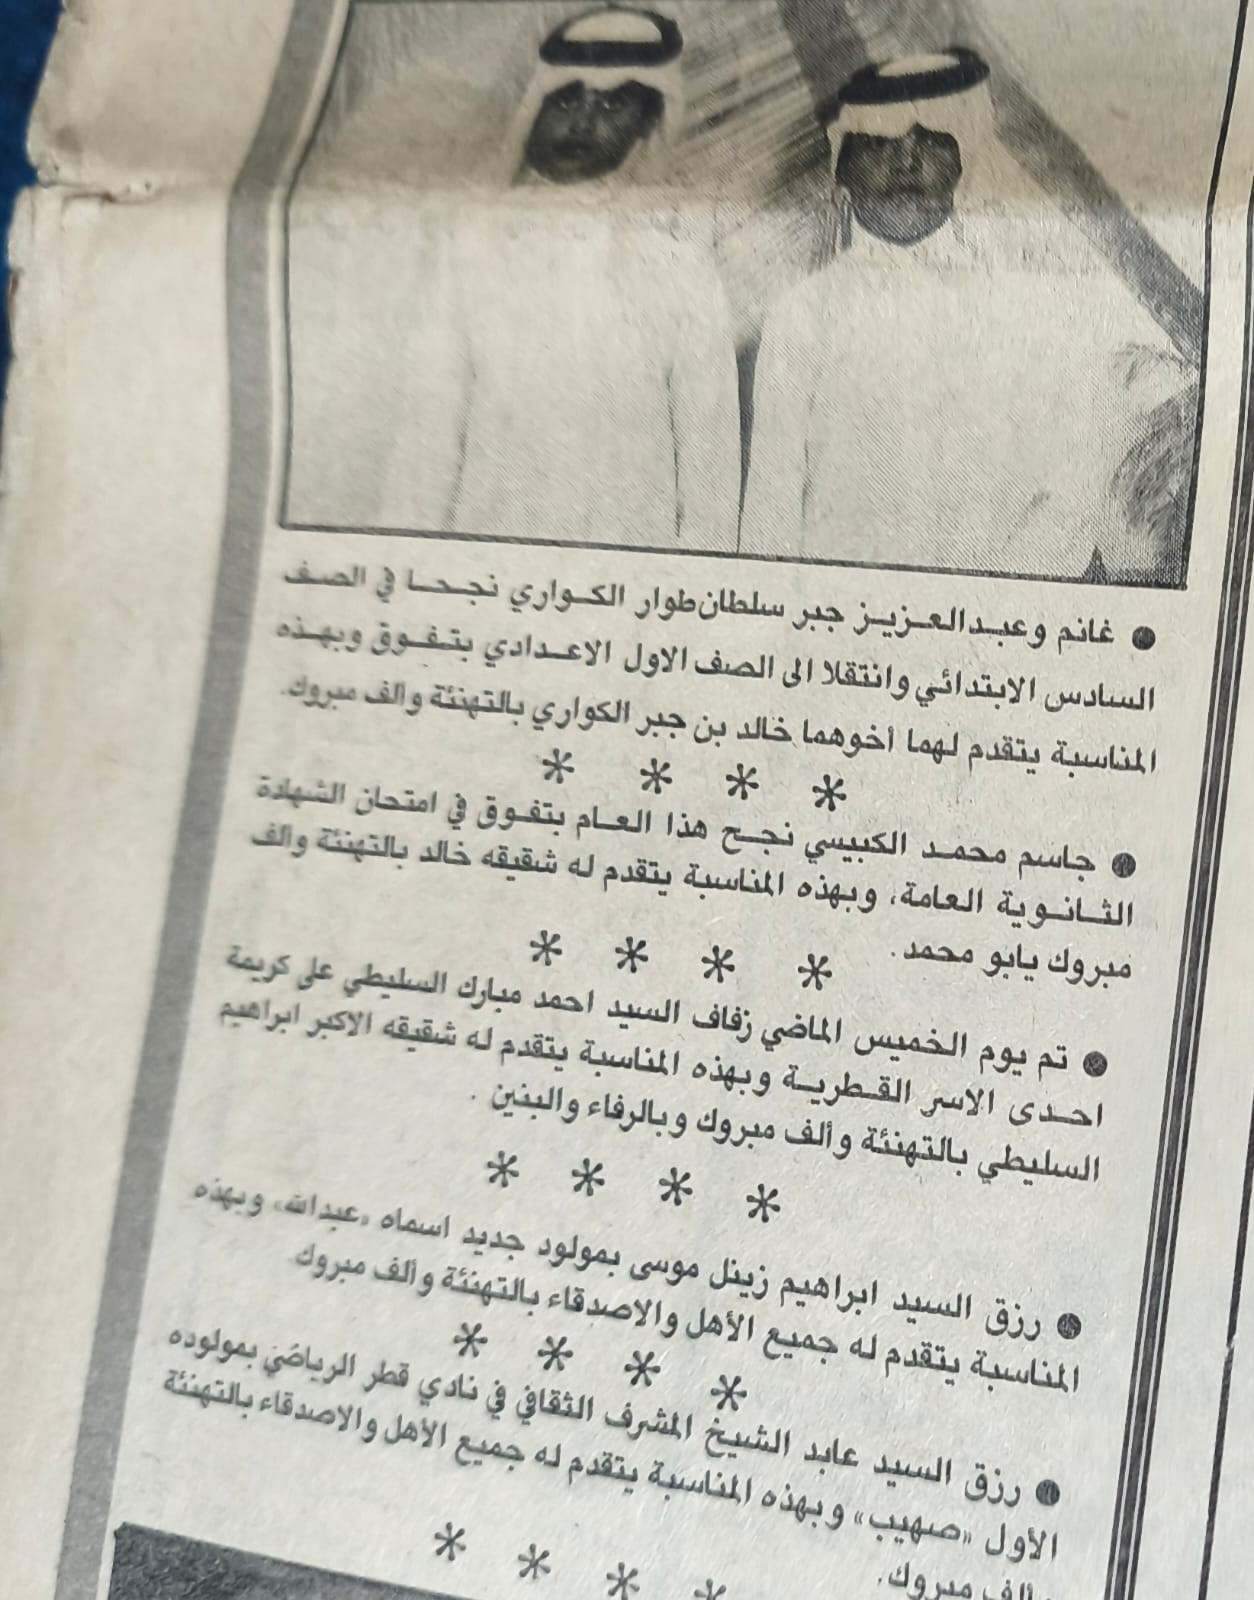 ● غانم وعبدالعزيز جبر سلطان طوار الكواري نجحا في الصف
السادس الابتدائي وانتقلا الى الصف الاول الاعدادي بتفوق وبهذه
المناسبة يتقدم لهما أخوهما خالد بن جبر الكواري بالتهنئة والف مبروك.
* * * *
● جاسم محمد الكبيسي نجح هذا العام بتفوق في امتحان الشهادة
الثانوية العامة، وبهذه المناسبة يتقدم له شقيقه خالد بالتهنئة والف
مبروك يابو محمد.
* * * *
● تم يوم الخميس الماضي زفاف السيد احمد مبارك السليطي على كريمة
احدى الاسر القطرية وبهذه المناسبة يتقدم له شقيقه الاكبر ابراهيم
السليطي بالتهنئة وألف مبروك وبالرفاء والبنين.
* * * *
● رزق السيد ابراهيم زينل موسى بمولود جديد اسماه «عبدالله» وبهذه
المناسبة يتقدم له جميع الأهل والاصدقاء بالتهنئة وألف مبروك
* * * *
● رزق السيد عابد الشيخ المشرف الثقافي في نادي قطر الرياضي بمولوده
الأول «صهيب» وبهذه المناسبة يتقدم له جميع الأهل والاصدقاء بالتهنئة
وألف مبروك.
* * * *